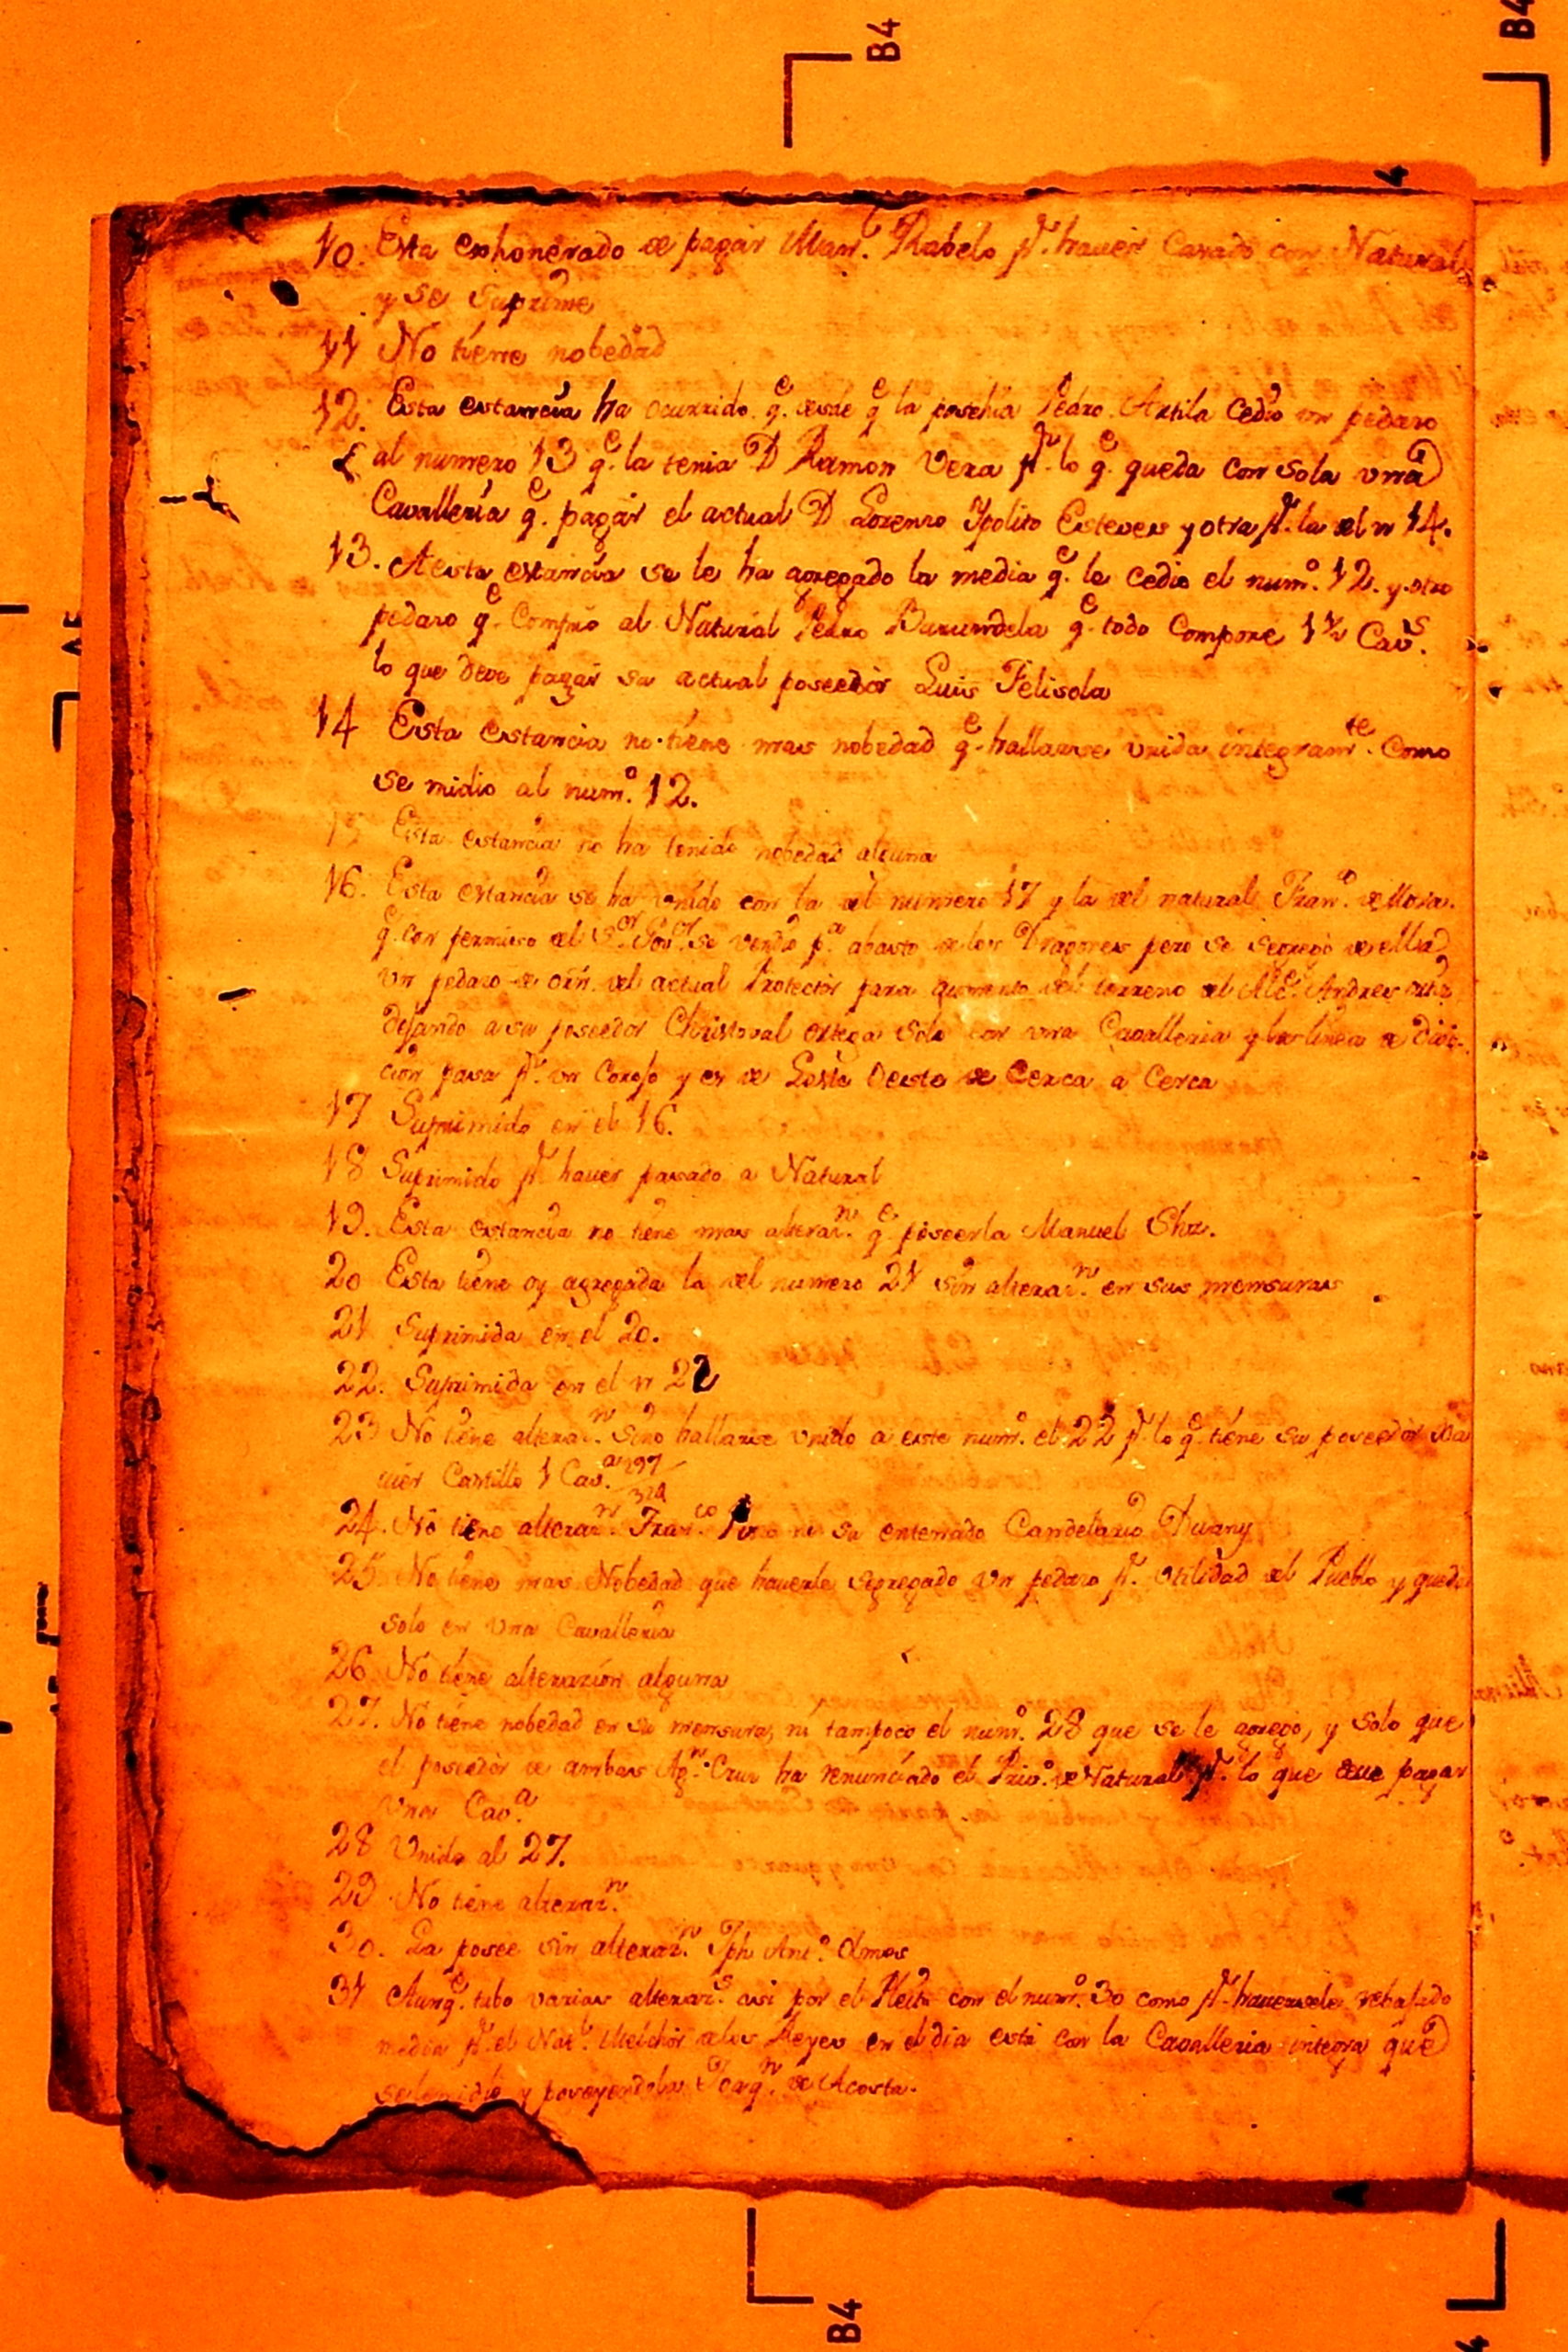 B4
B4
10. Esta exhonerado de pagar Man.l Rabelo p.r haver Casado con Natural
y se suprime
11 No tiene nobedad
12. Esta estancia ha ocurrido q.e desde q.e la posehia Pedro Artila Cedio un pedazo
al numero 13 q.e la tenia D Ramon Vera p.r lo q.e queda con sola vna
Cavalleria q.e pagar el actual D Lorenzo Ypolito Esteves y otra p.r la del n 14.
13. A esta estancia se le ha agregado la media q.e le cedio el num.o 12. y otro
pedazo q.e Compro al Natural Pedro Burundela q.e todo Compone 1 1/2 Cav.s
lo que deve pagar su actual poseedor Luis Felisola
14 Esta estancia no tiene mas nobedad q.e hallarse vnida integram.te como
se midio al num.o 12.
15 Esta estancia no ha tenido nobedad alguna
16. Esta estancia se ha vnido con la del numero 17 y la del natural Fran.o de
q.e con permiso del S.or Gov.or se vendio p.a abasto de los Dragones pero se segregó de ella
vn pedazo de orn. del actual Protector para aumento del terreno del Alc.e Andres
dejando a su poseedor Christoval ortega solo con vna Cavalleria y la linea a divi-
cion pasa p.r vn Corojo y es de Leste Oeste de Cerca a Cerca
17 Suprimido en el 16.
18 Suprimido p.r haver pasado a Natural
19. Esta estancia no tiene mas alteraz.n q.e poseerla Manuel Shz.
20 Esta tiene oy agregada la del numero 21 sin alteraz.n en sus mensuras
21 Suprimida en el 20.
22. Suprimida en el n 22
23 No tiene alteraz.n sino hallarse vnido a este num.o el 22 p.r lo q.e tiene su poseedor Xa
vier Castillo 1 Cav.a 297
324
24. No tiene alteraz.n Fran.co ni su entenado Candelario Duany
25 No tiene mas Nobedad que haverle segregado vn pedazo p.r vtilidad del Pueblo y queda
solo en vna Cavalleria
26 No tiene alterazion alguna
27. No tiene nobedad en su mensura, ni tampoco el num.o 28 que se le agregó, y solo que
el poseedor de ambas Ag.n Cruz ha renunciado el Priv.o de Natural p.r lo que deve pagar
vna Cav.a
28 Unida al 27.
29 No tiene alteraz.n
30. La posee sin alteraz.n Jph Ant.o Olmos
31 Aunq.e tubo varias alteraz.s asi por el Pleito con el num.o 30 como p.r haversele rebajado
media p.r el Nat.l Melchor de los Reyes en el dia está con la Cavalleria integra que
se le midió y poseyendola Joaq.n de Acosta.
B4